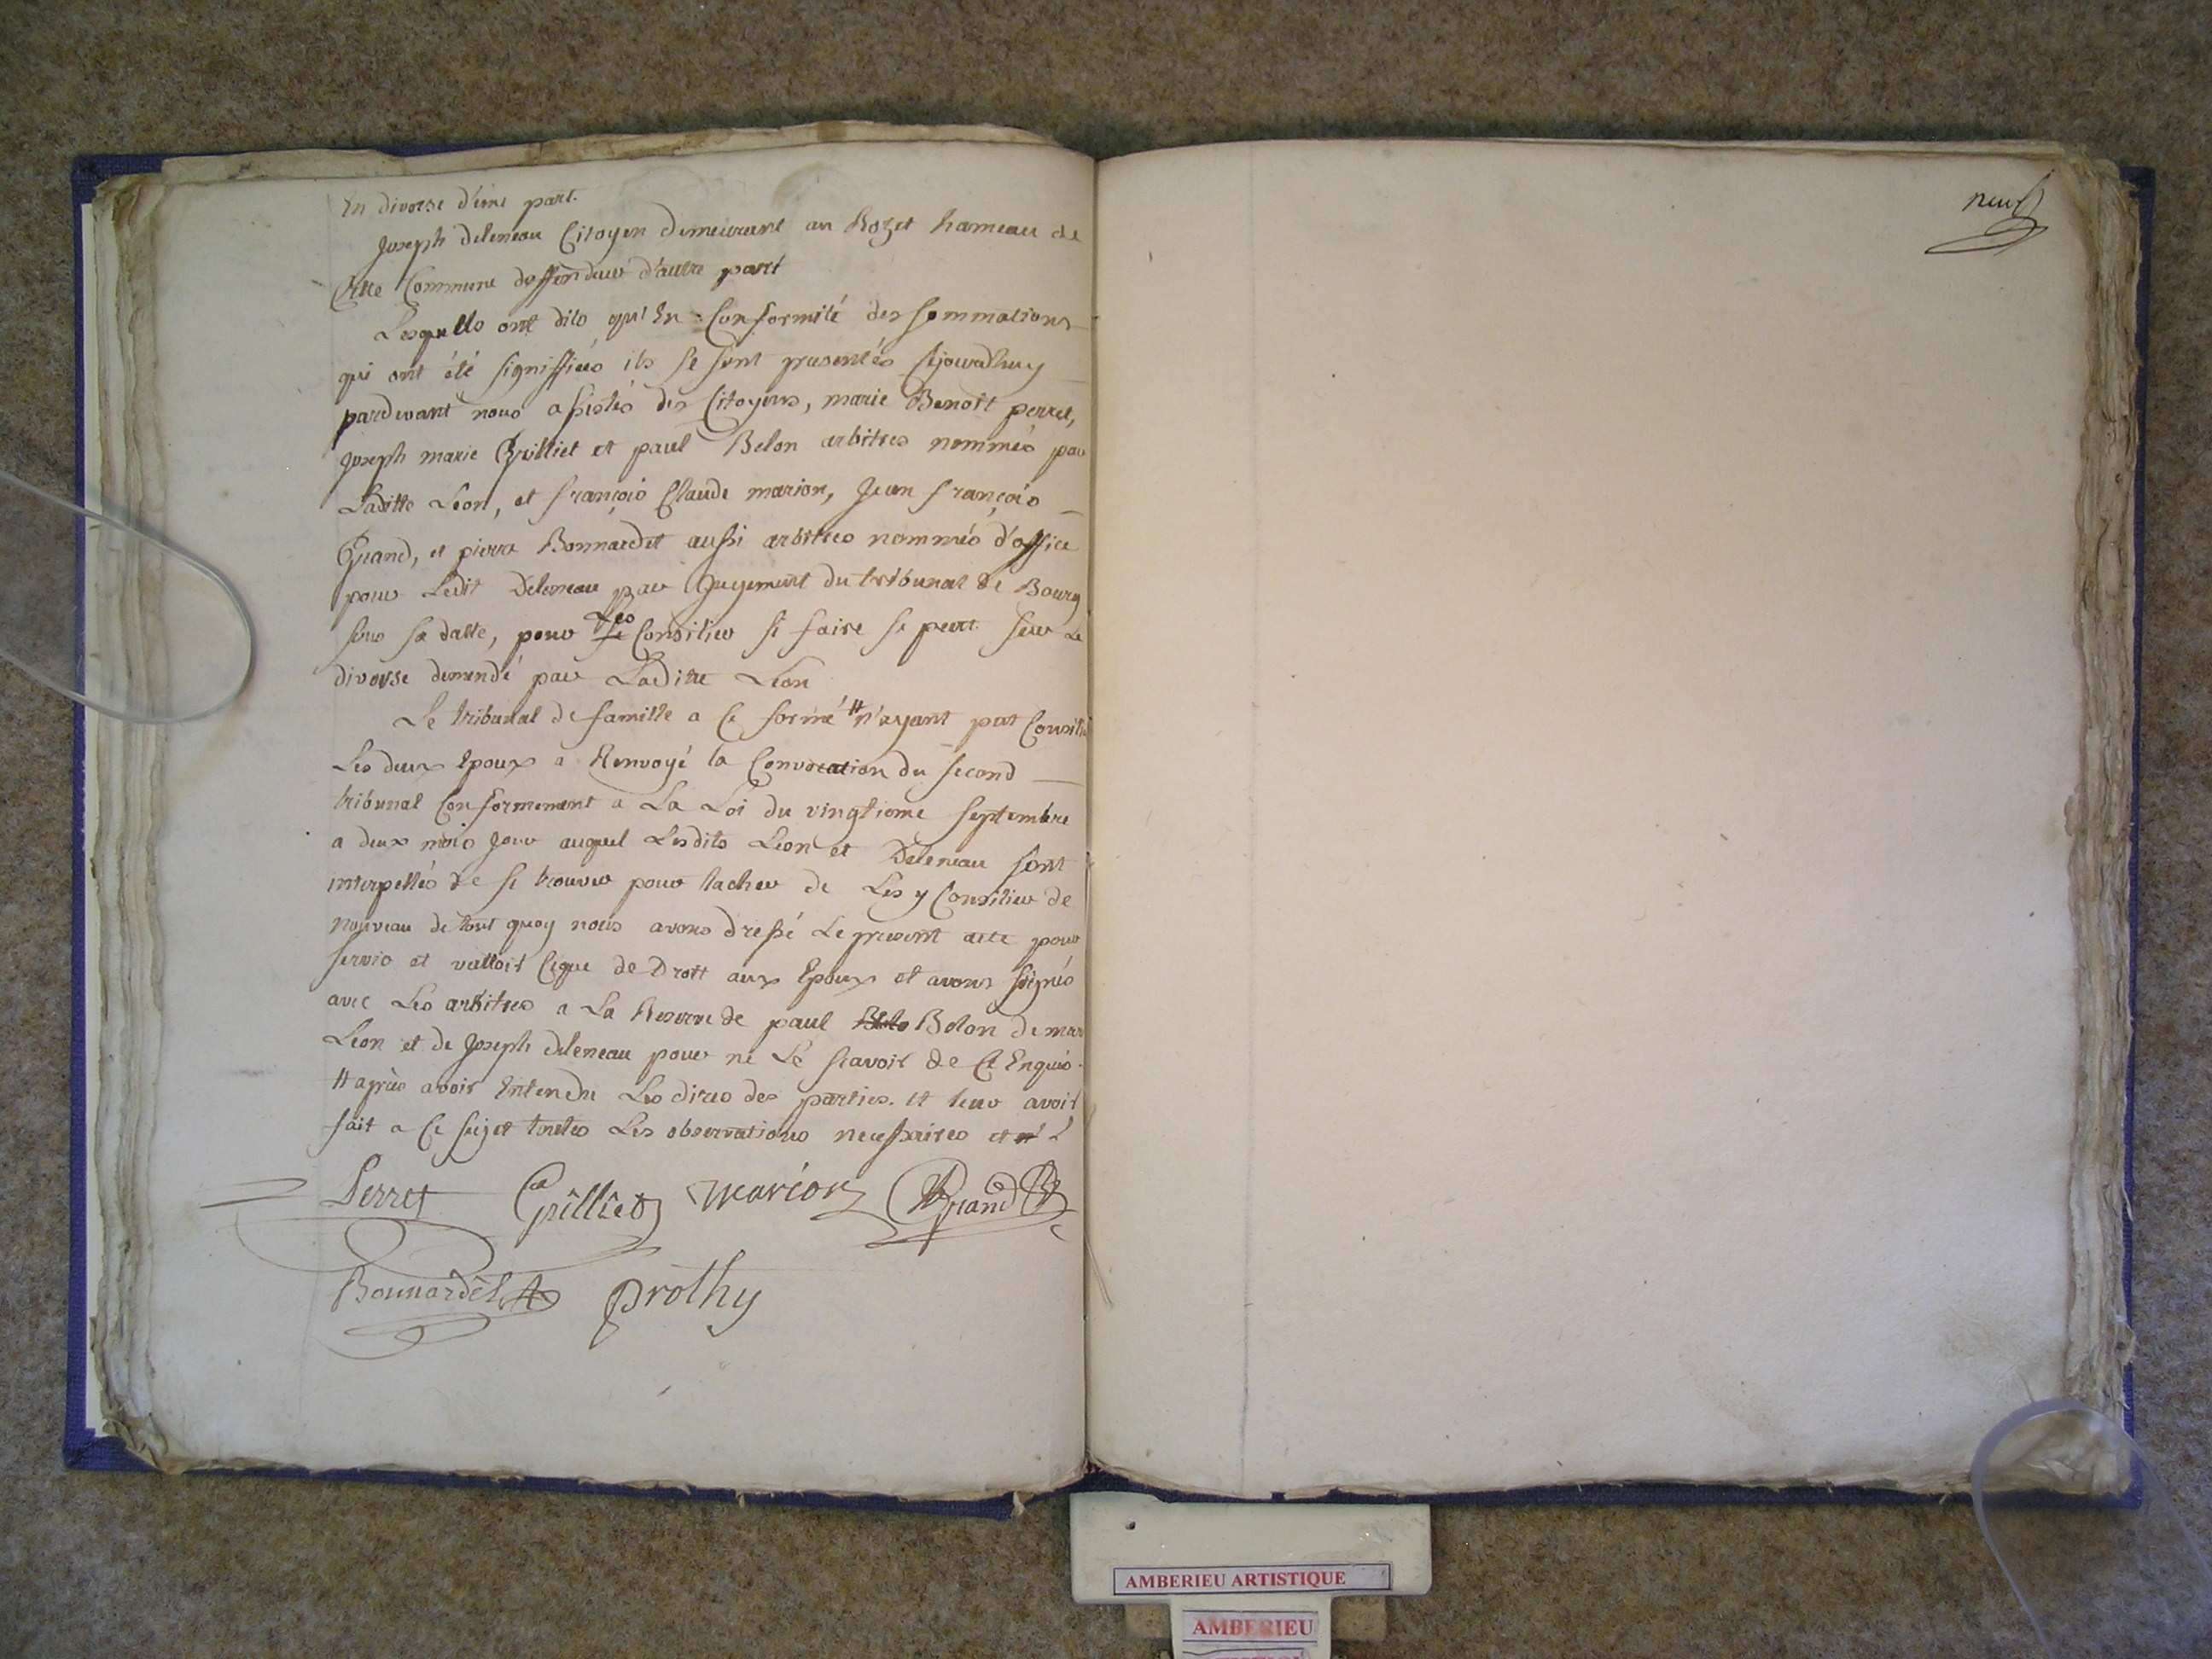 En divorse d'une part.
Joseph deleneau Citoyen demeurant au Rozet hameau de
Cette Commune deffendeur d'autre part
Lesquells ont dits qu'En Conformité des sommations
qui ont été signiffiéés ils se sont presentés Cejourdhuy
pardevant nous assistés des Citoyens, marie Benoit perret,
Joseph marie Grilliet et paul Belon arbitres nommés par
Laditte Léon, et françois Claude marion, Jean françois
Grand, et pierre Bonnardet aussi arbitres nommés d'office
pour Ledit Deleneau par Jugement du tribunal de Bourg
sous sa datte, pour Les Consilier si faire se peut sur Le
divorse demendé par Laditte Léon
Le tribunal de famille a Ce formé # n'ayant put Consilié
Les deux Epoux a Renvoyé la Convocation du second
tribunal Conformement a La Loi du vingtieme septembre
a deux mois Jour auquel Lesdits Léon et Deleneau sont
interpellés de se trouver pour tacher de Les y Consilier de
nouveau de tout quoy nous avons dressé Le present acte pour
servir et valloir Ceque de Droit aux Epoux et avons signés
avec Les arbitres a La Reserve de paul Belon de mar
Léon et de Joseph deleneau pour ne Lé scavoir de Ce Enquis.
# après avoir Entendu Les dires des parties. et leur avoir
fait a Ce sujet toutes Les observations necessaires et
Perret Grilliet marion Grand
Bonnardet prothy
neuf
AMBERIEU ARTISTIQUE
AMBERIEU